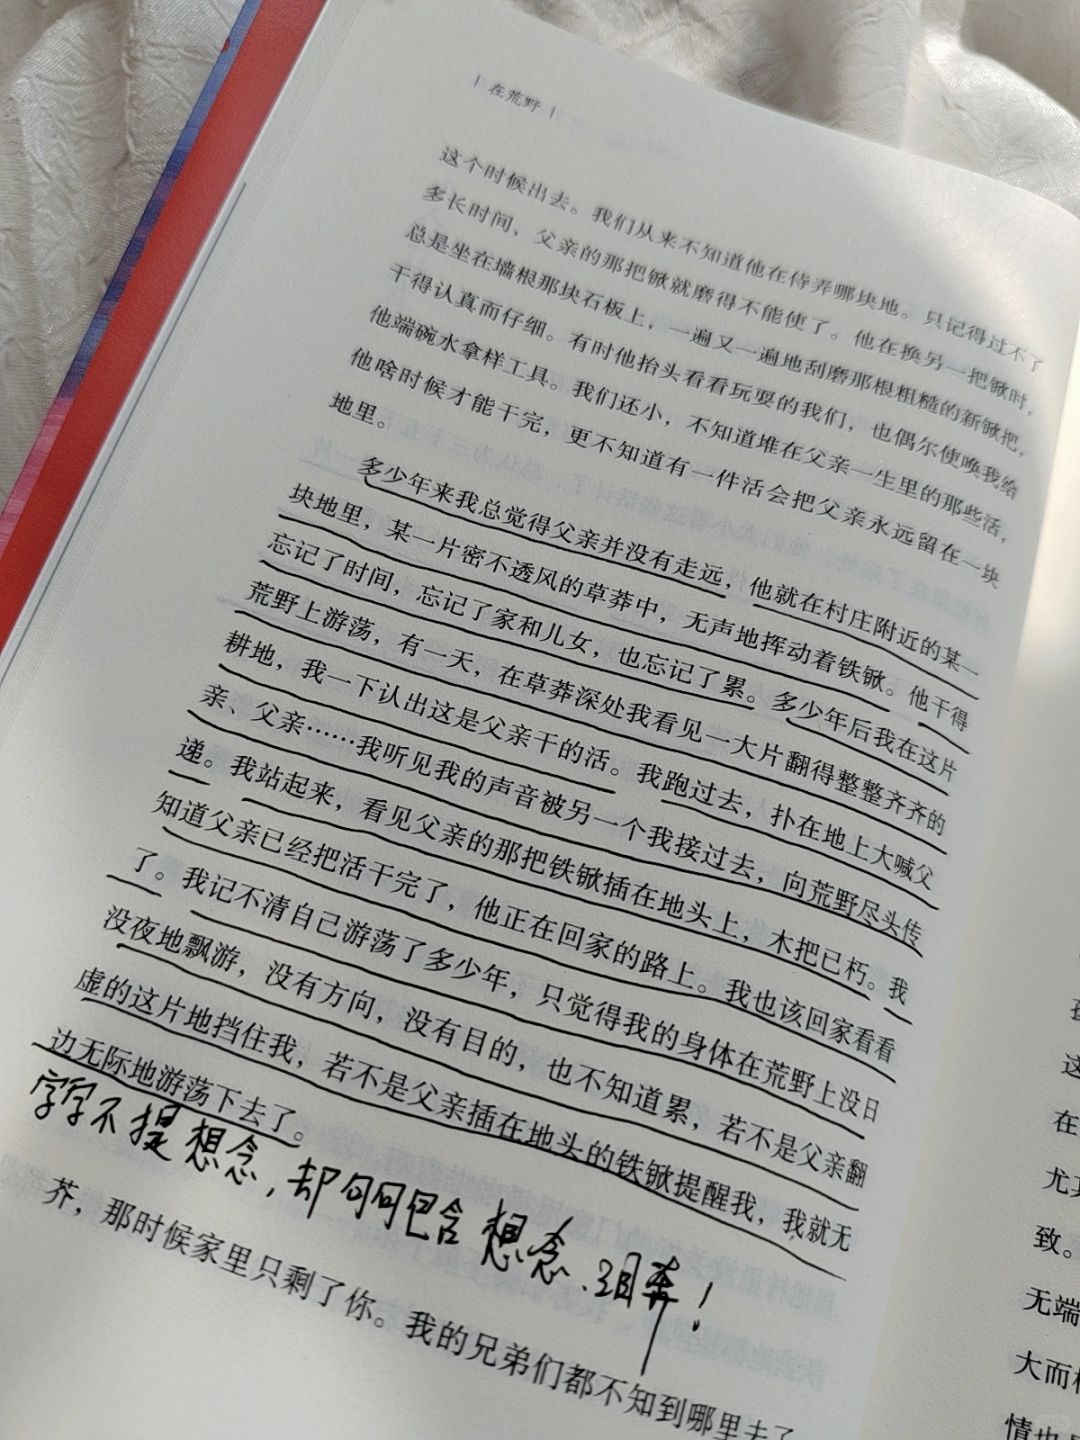 | 在荒野 |
这个时候出去。我们从来不知道他在侍弄哪块地。只记得过不了
多长时间，父亲的那把锨就磨得不能使了。他在换另一把锨时，
总是坐在墙根那块石板上，一遍又一遍地刮磨那根粗糙的新锨把，
干得认真而仔细。有时他抬头看看玩耍的我们，也偶尔使唤我给
他端碗水拿样工具。我们还小，不知道堆在父亲一生里的那些活，
他啥时候才能干完，更不知道有一件活会把父亲永远留在一块
地里。
多少年来我总觉得父亲并没有走远，他就在村庄附近的某一
块地里，某一片密不透风的草莽中，无声地挥动着铁锨。他干得
忘记了时间，忘记了家和儿女，也忘记了累。多少年后我在这片
荒野上游荡，有一天，在草莽深处我看见一大片翻得整整齐齐的
耕地，我一下认出这是父亲干的活。我跑过去，扑在地上大喊父
亲、父亲……我听见我的声音被另一个我接过去，向荒野尽头传
递。我站起来，看见父亲的那把铁锨插在地头上，木把已朽。我
知道父亲已经把活干完了，他正在回家的路上。我也该回家看看
了。我记不清自己游荡了多少年，只觉得我的身体在荒野上没日
没夜地飘游，没有方向，没有目的，也不知道累，若不是父亲翻
虚的这片地挡住我，若不是父亲插在地头的铁锨提醒我，我就无
边无际地游荡下去了。
字字不提想念，却句句包含想念、泪奔！
芥，那时候家里只剩了你。我的兄弟们都不知到哪里去了
这
在
尤其
致。
无端
大而
情也